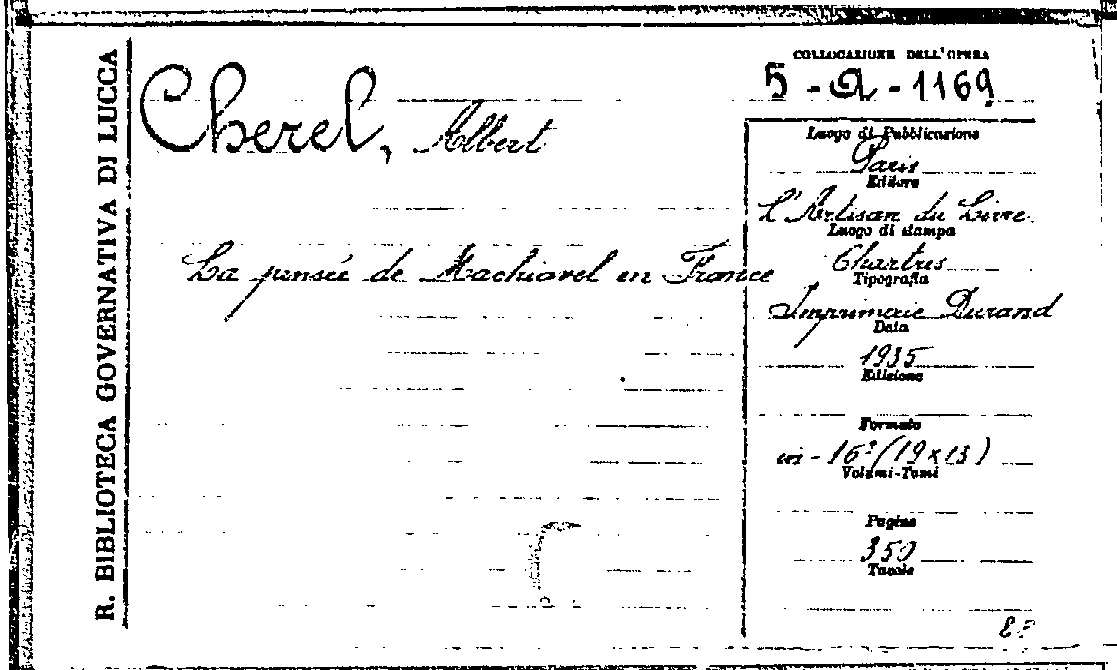 R. BIBLIOTECA GOVERNATIVA DI LUCCA
Cherel, Albert
La pensée de Machiavel en France
COLLOCAZIONE DELL'OPERA
5 - Q - 1169
Luogo di Pubblicazione
Paris
Editore
L'Artisan du Livre
Luogo di stampa
Chartres
Tipografia
Imprimerie Durand
Data
1935
Edizione
Formato
in-16º (19x13)
Volumi-Tomi
Pagine
350
Tavole